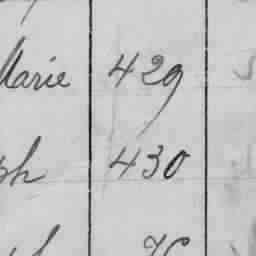 Marie 429
ph 430